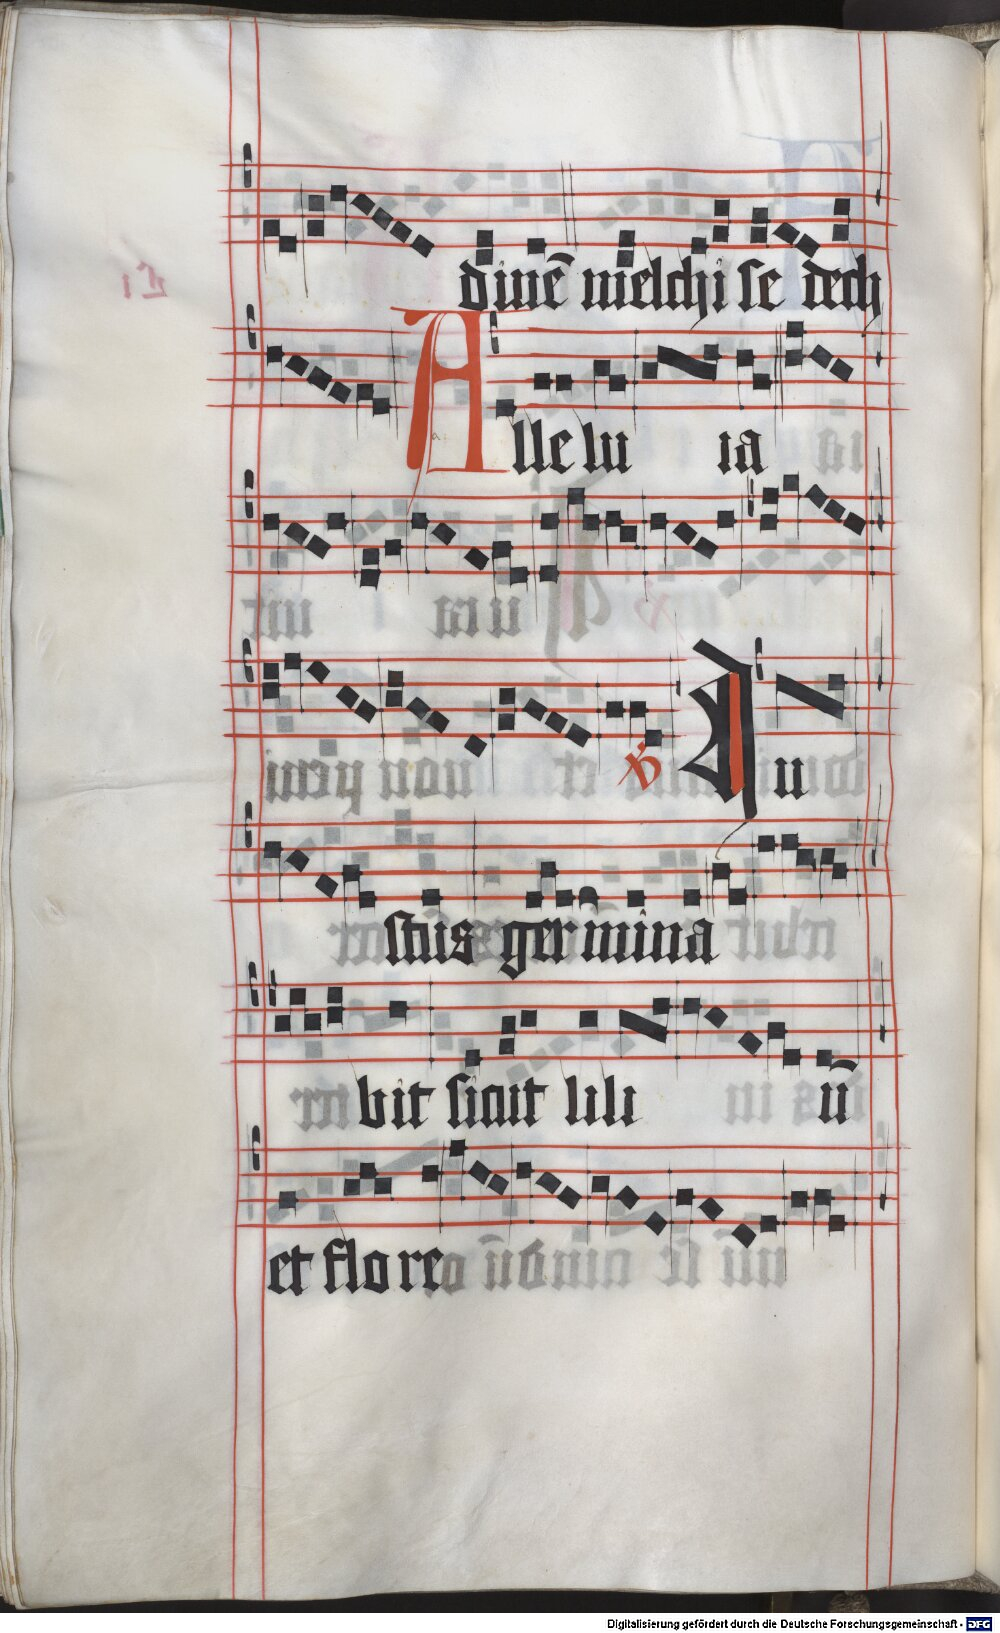 dinē melchi se dech
Alle lu ia
℣ Iu
stus germina
bit sicut lili ū
et flore
Digitalisierung gefördert durch die Deutsche Forschungsgemeinschaft - DFG